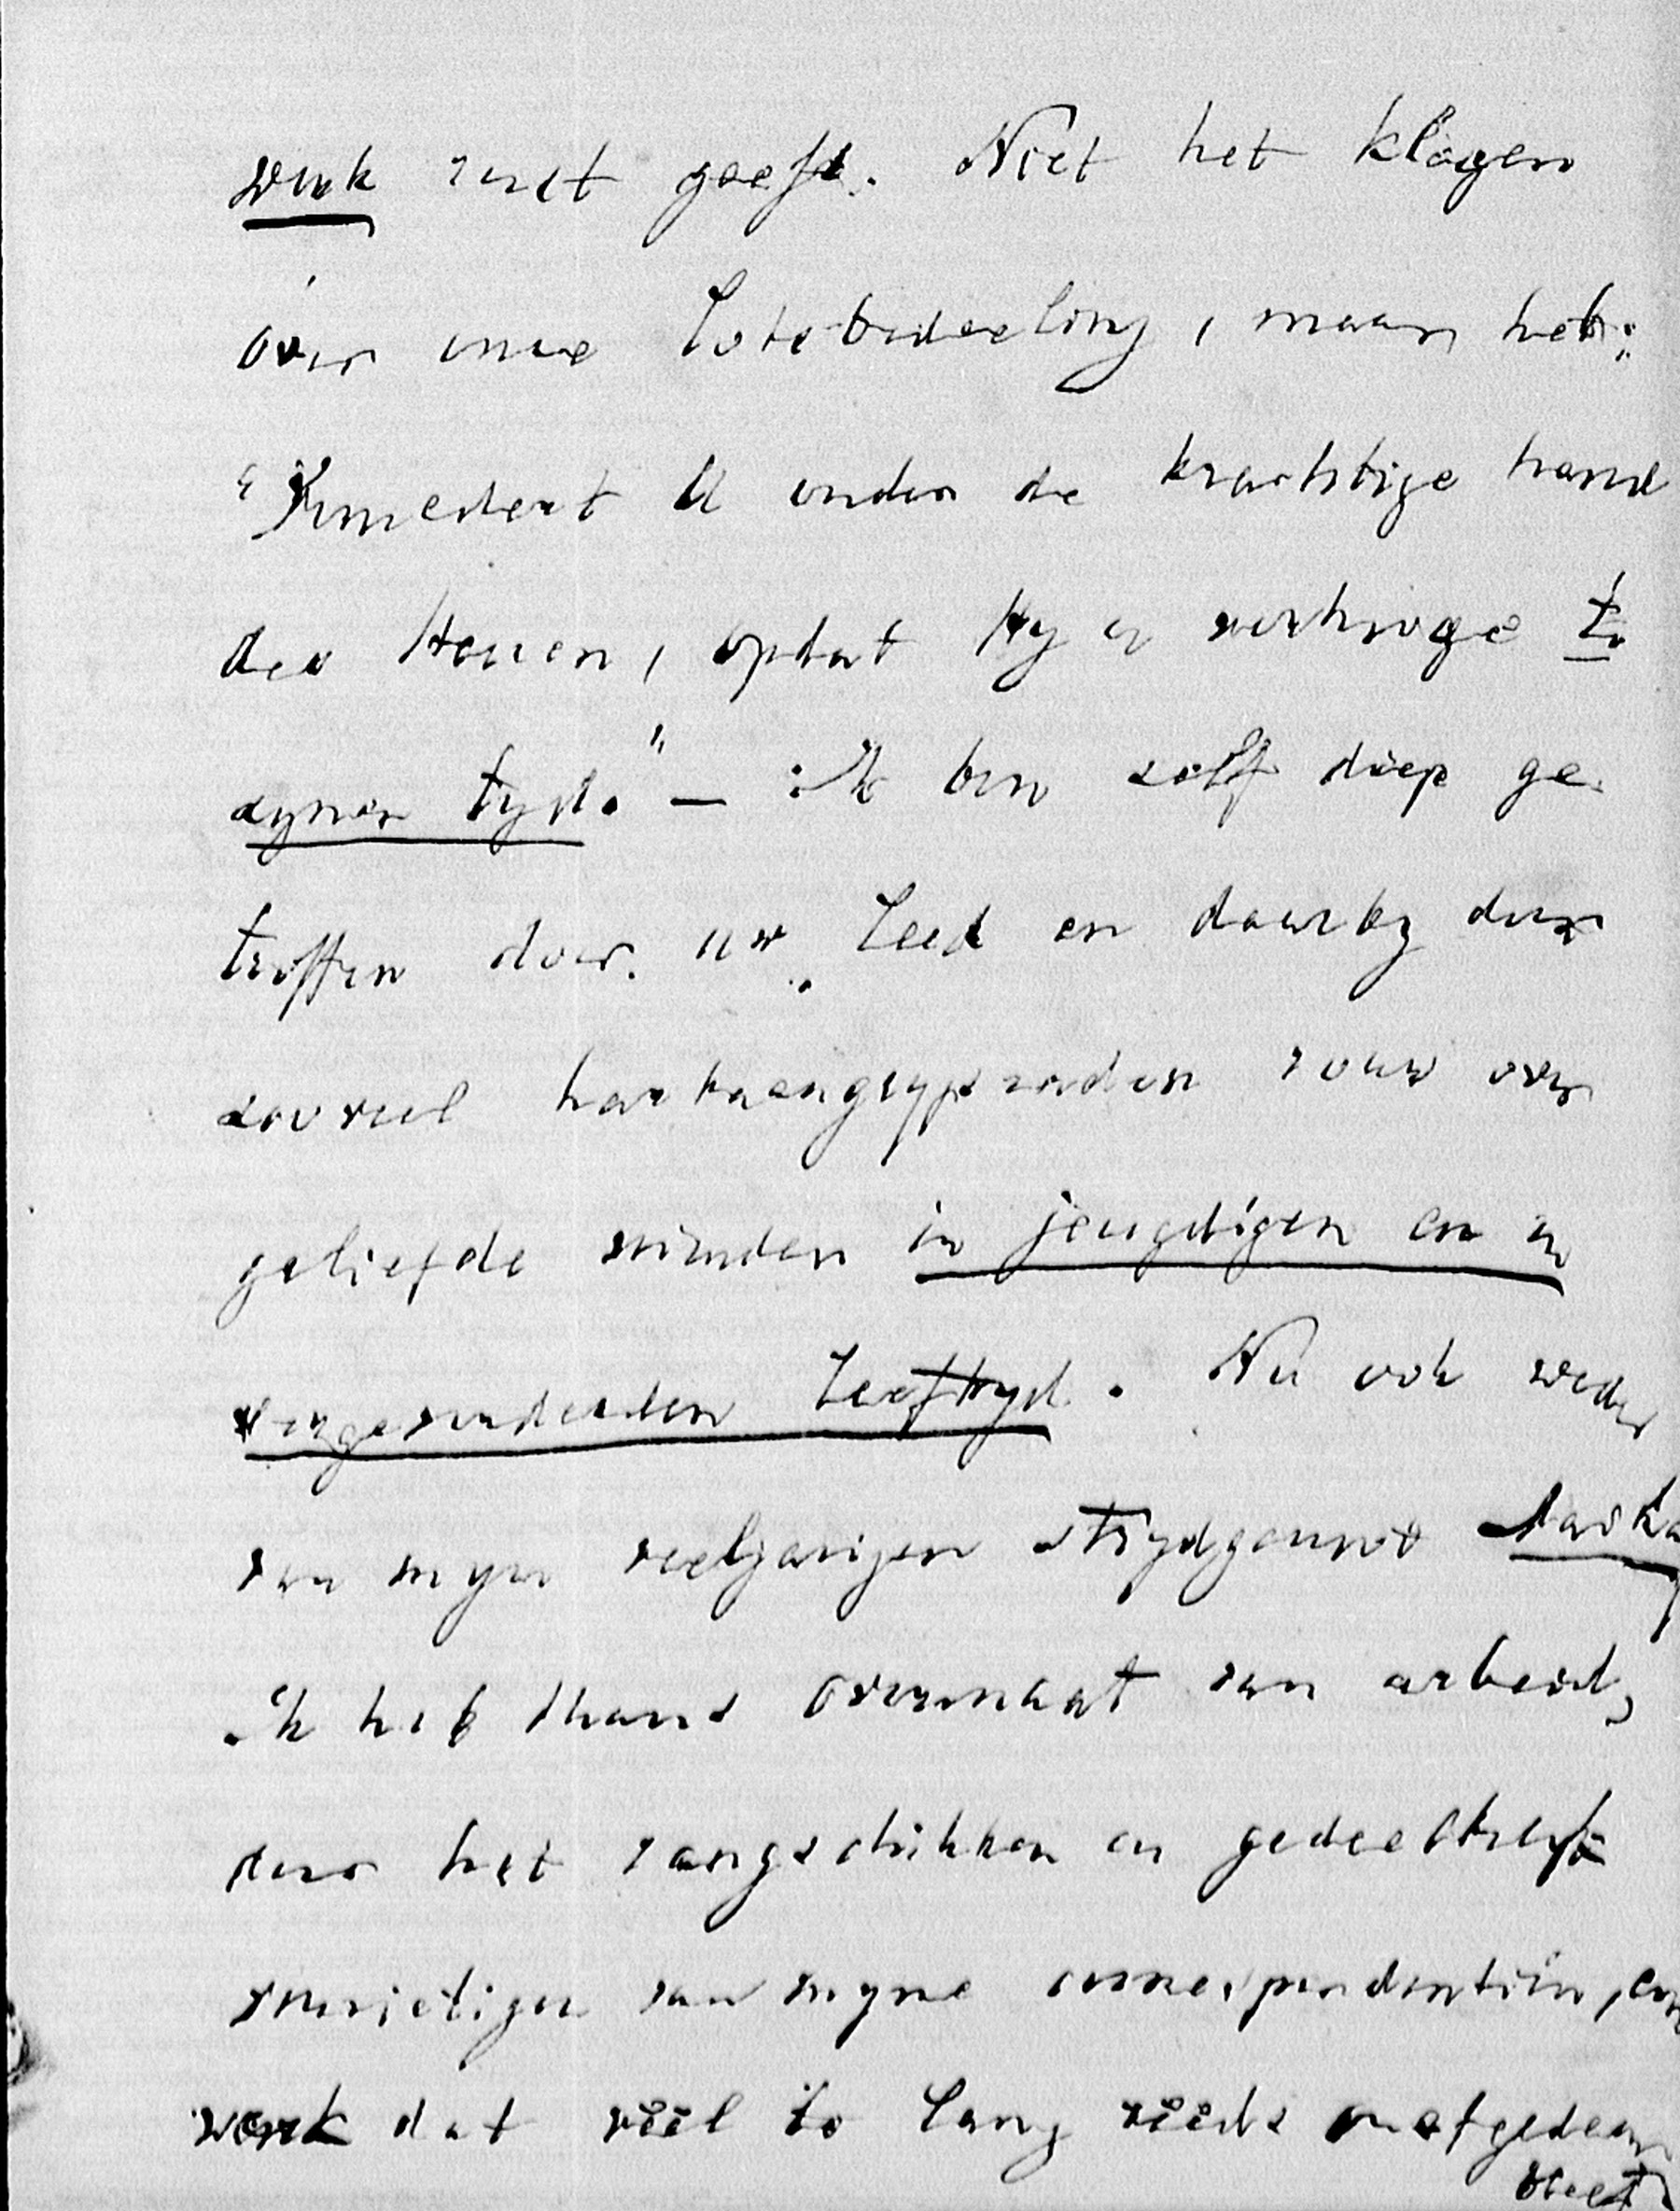 werk rust geeft. Niet het klagen
over onze lotsbedeeling, maar het:
"Vernedert U onder de krachtige hand
des Heeren, opdat Hy u verhooge te
zyner tyd." — Ik ben zelf diep ge-
troffen door uw leed en daarby door
zooveel hartaangrypenden rouw over
geliefde vrinden in jeugdigen en in
vergevorderden leeftyd. Nu ook weder
van myn veeljarigen strydgenoot
Ik heb thans overmaat van arbeid,
door het rangschikken en gedeeltelyk
vernietigen van myne correspondentiën, een
werk dat veel te lang reeds onafgedaan
bleef